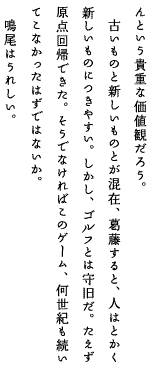 んという貴重な価値観だろう。
　古いものと新しいものとが混在、葛藤すると、人はとかく
新しいものにつきやすい。しかし、ゴルフとは守旧だ。たえず
原点回帰できた。そうでなければこのゲーム、何世紀も続い
てこなかったはずではないか。
　鳴尾はうれしい。